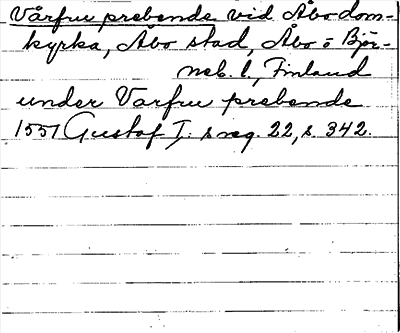 Vårfru prebende vid Åbo dom-
kyrka, Åbo stad, Åbo o Björ-
neb. l., Finland
under Varfru prebende
1551 Gustaf I:s reg. 22, s. 342.